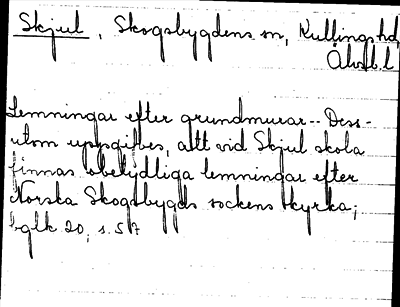 Skjul, Skogsbygdens sn, Kullings hd,
Älvsb. l.
Lemningar efter grundmurar -- Dess-
utom uppgifves, att vid Skjul skola
finnas obetydliga lemningar efter
Norska Skogsbygds sockens kyrka;
bglk 20, s. 57